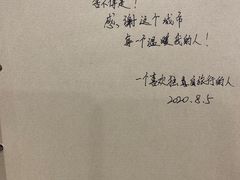 舍不得走!
感谢这个城市
每一个温暖我的人!
一个喜欢独自旅行的人
2020.8.5